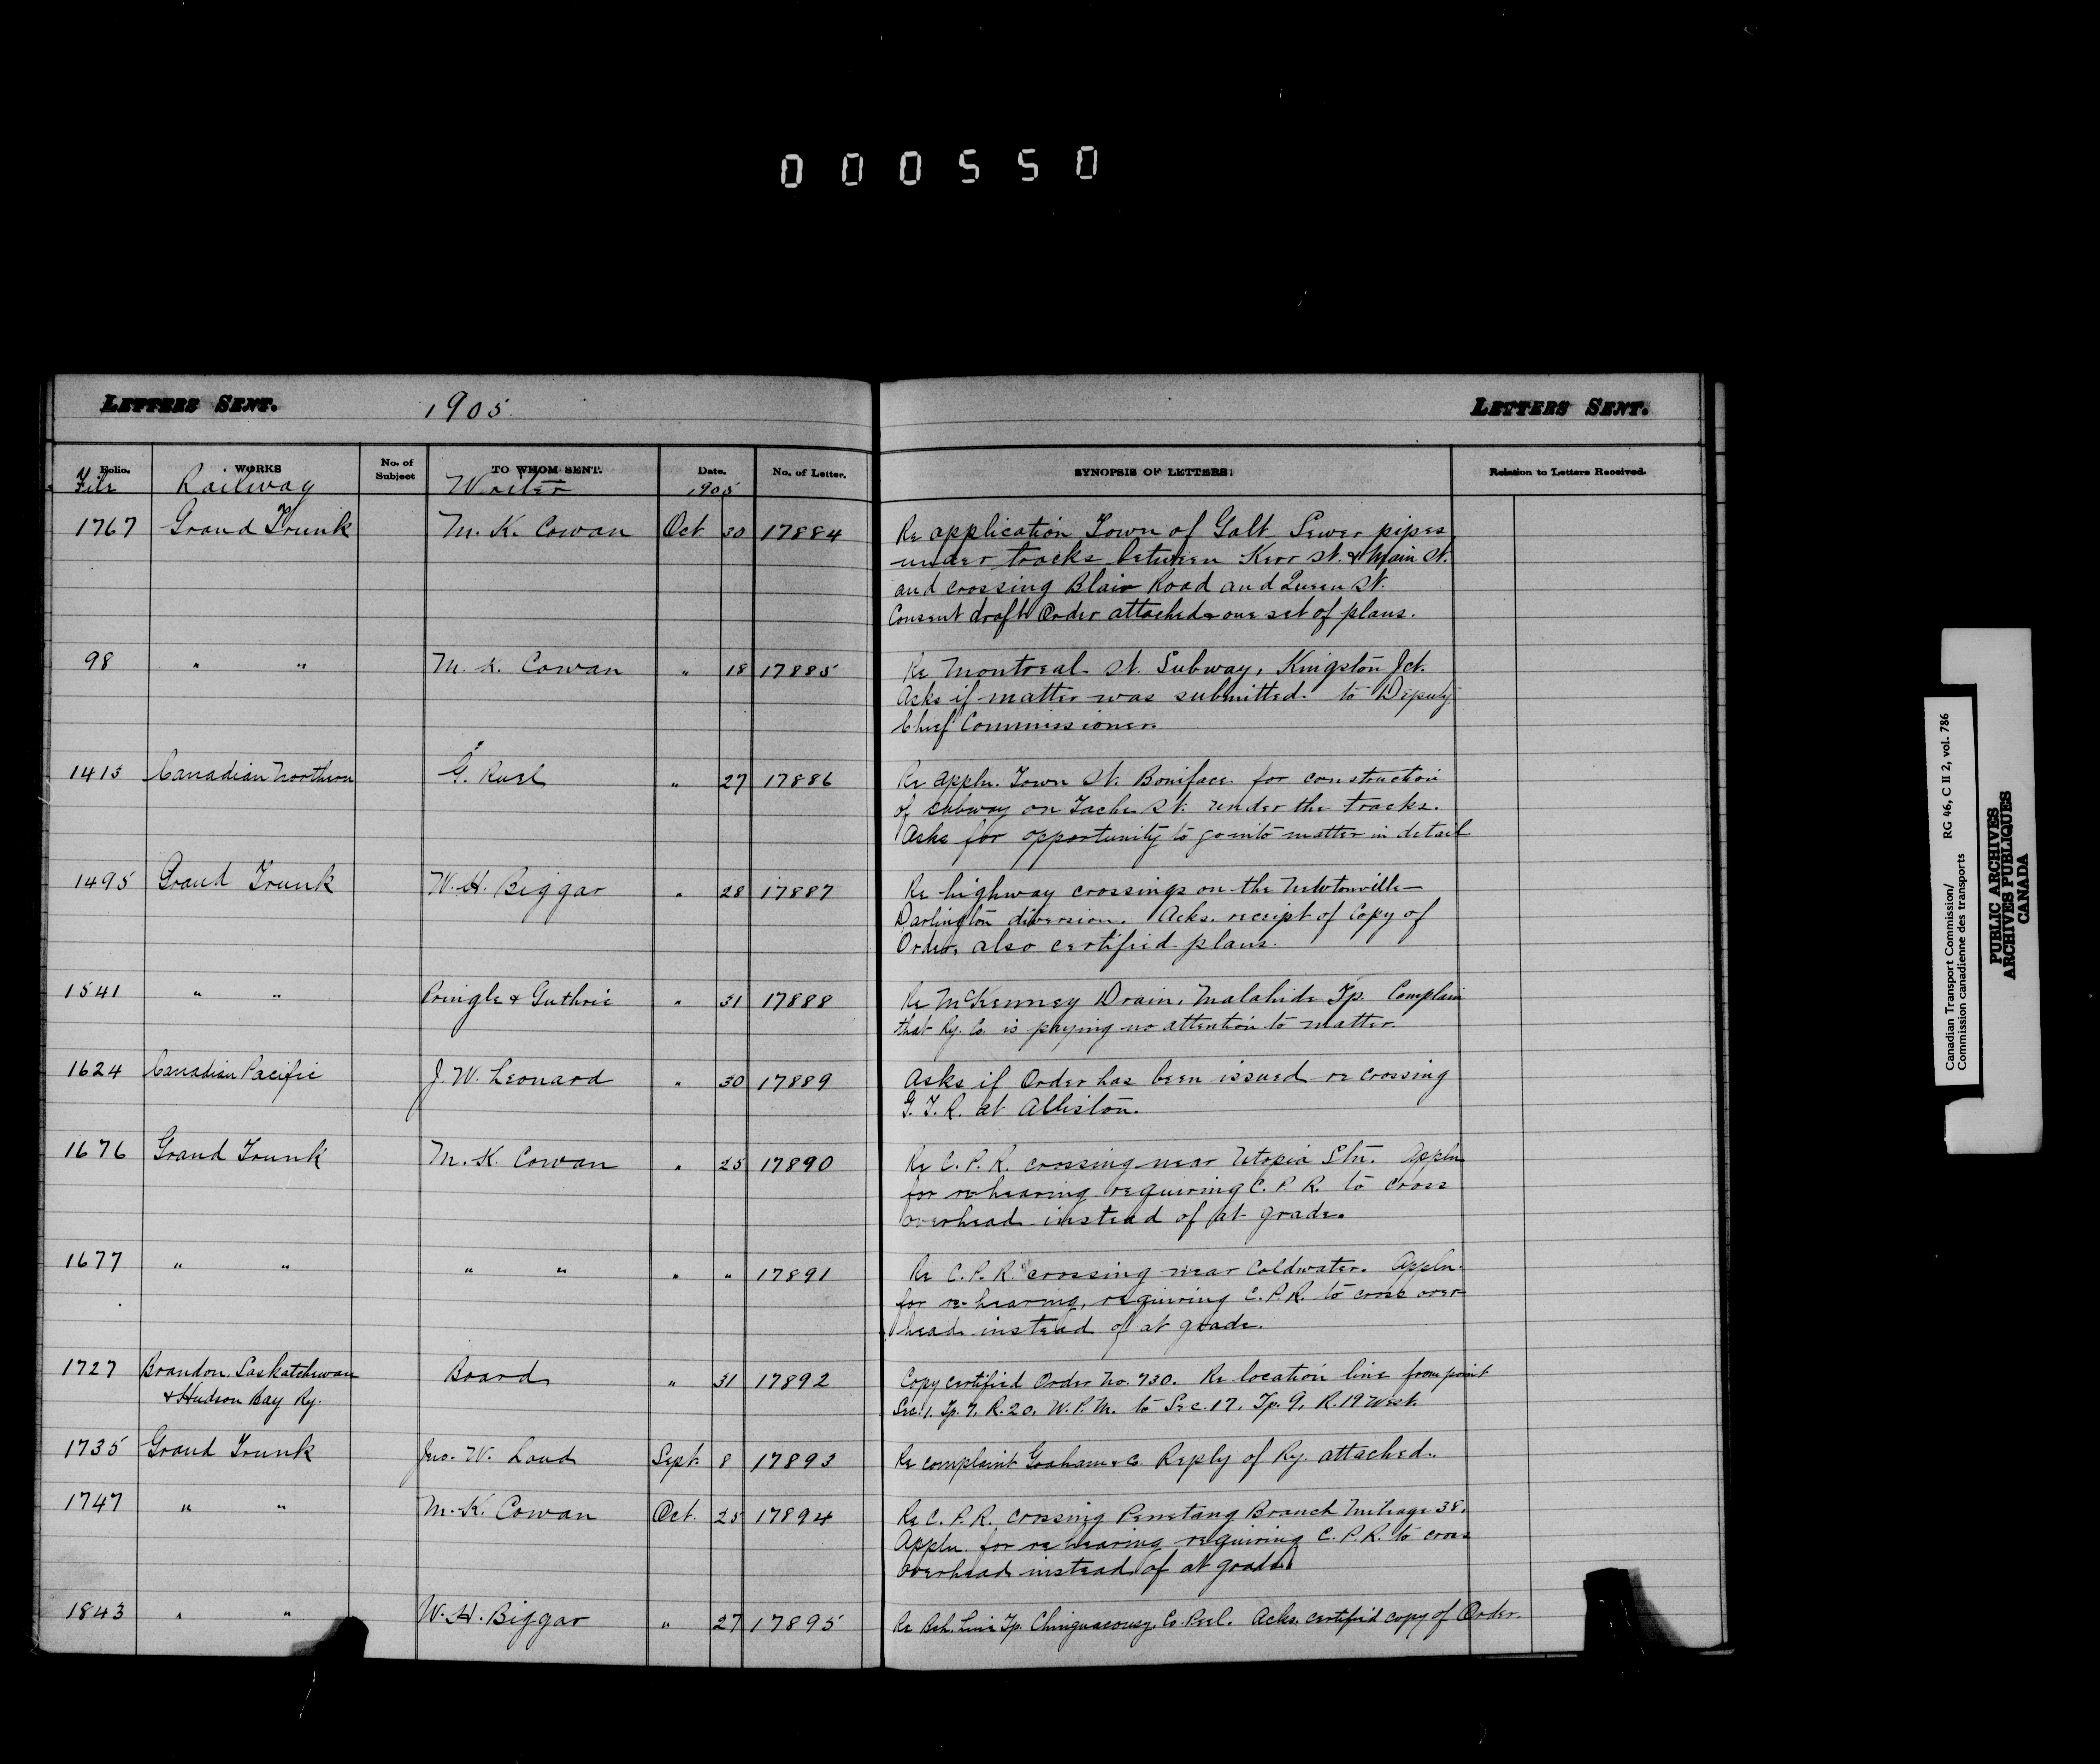 000550
LETTERS SENT. 1905. LETTERS SENT.
Folio. WORKS No. of Subject TO WHOM SENT. Date. No. of Letter. SYNOPSIS OF LETTERS. Relation to Letters Received.
File Railway Writer 1905
1767 Grand Trunk M. K. Cowan Oct 30 17884 Re application Town of Galt Sewer pipes
under tracks between Kerr St. & Main St.
and crossing Blair Road and Queen St.
Consent draft Order attached & one set of plans.
98 " " M. K. Cowan " 18 17885 Re Montreal St. Subway, Kingston Jct.
Asks if matter was submitted to Deputy
Chief Commissioner.
1413 Canadian Northern G. Ruel " 27 17886 Re appln. Town St. Boniface for construction
of subway on Tache St. under the tracks.
Asks for opportunity to go into matter in detail
1495 Grand Trunk W. H. Biggar " 28 17887 Re highway crossings on the Newtonville-
Darlington diversion. Acks. receipt of Copy of
Order, also certified plans.
1541 " " Pringle & Guthrie " 31 17888 Re McKenney Drain, Malahide Tp. Complain
that Ry. Co. is paying no attention to matter.
1624 Canadian Pacific J. W. Leonard " 30 17889 Asks if Order has been issued re crossing
G. T. R. at Alliston.
1676 Grand Trunk M. K. Cowan " 25 17890 Re C. P. R. crossing near Utopia Stn. Appln
for rehearing requiring C. P. R. to cross
overhead instead of at grade.
1677 " " " " " " 17891 Re C. P. R. crossing near Coldwater. Appln.
for re-hearing, requiring C. P. R. to cross over-
head instead of at grade.
1727 Brandon, Saskatchewan Board " 31 17892 Copy certified Order No. 730. Re location line from point
& Hudson Bay Ry. Sec. 1. Tp. 9, R. 20, W. P. M. to Sec. 17. Tp. 9, R. 19 West.
1735 Grand Trunk Jno. W. Loud Sept. 8 17893 Re complaint Graham & Co. Reply of Ry. attached.
1747 " " M. K. Cowan Oct. 25 17894 Re C. P. R. crossing Penetang Branch Mileage 38.
Appln. for rehearing requiring C. P. R. to cross
overhead instead of at grade.
1843 " " W. H. Biggar " 27 17895 Re Bch. Line Tp. Chinguacousy, Co. Peel. Acks. certified copy of Order.
Canadian Transport Commission/ RG 46, C II 2, vol. 786
Commission canadienne des transports
PUBLIC ARCHIVES
ARCHIVES PUBLIQUES
CANADA